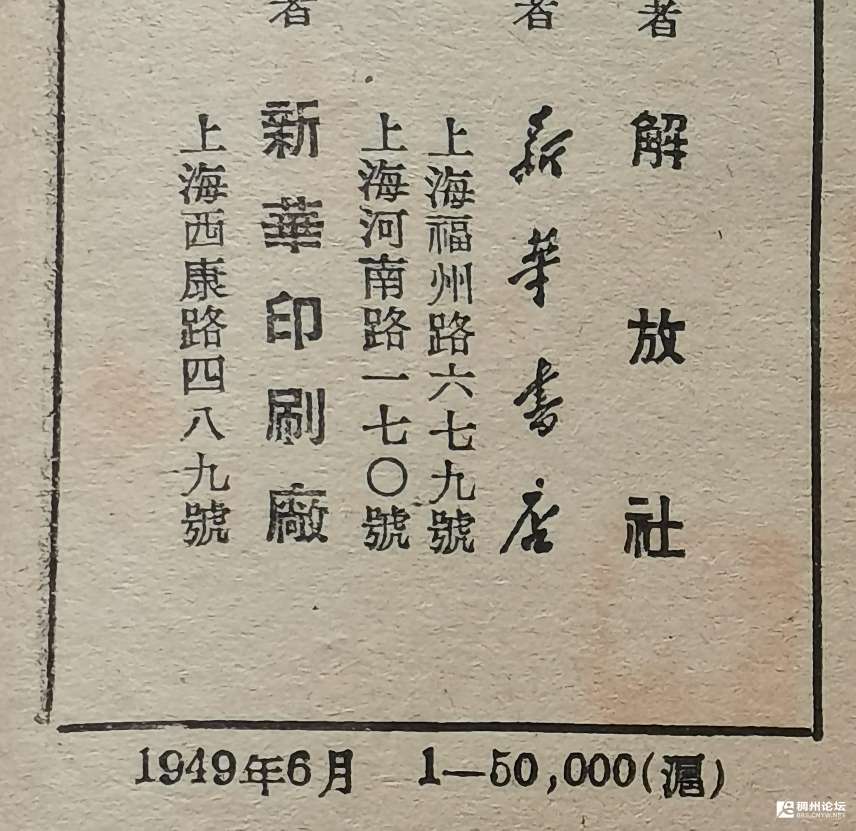 者 解放社
者 新華書店
上海福州路六七九號
上海河南路一七〇號
者 新華印刷廠
上海西康路四八九號
1949年6月 1—50,000(滬)
稠州论坛
BBS.CNYW.NET